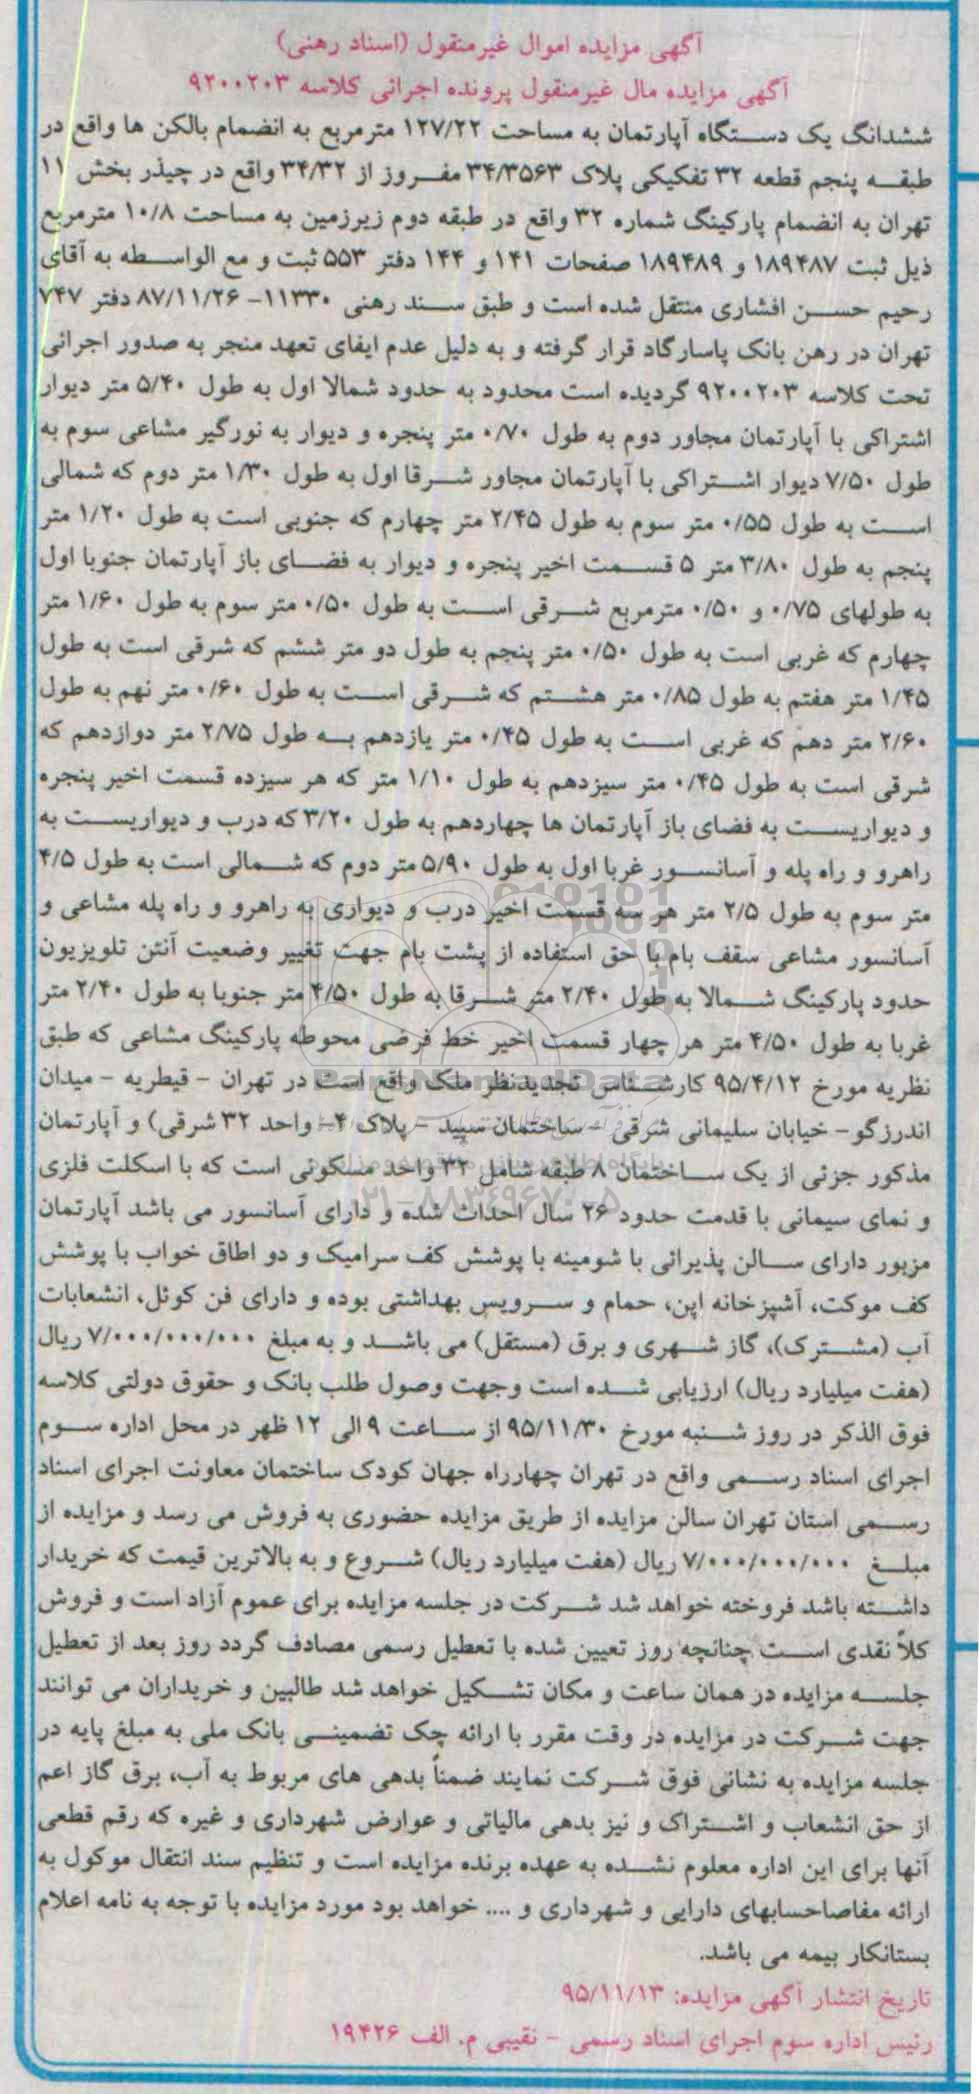 آگهی مزایده اموال غیرمنقول (اسناد رهنی)
آگهی مزایده مال غیرمنقول پرونده اجرائی کلاسه ۹۲۰۰۲۰۳
ششدانگ یک دستگاه آپارتمان به مساحت ۱۲۷/۲۲ مترمربع به انضمام بالکن ها واقع در
طبقه پنجم قطعه ۳۲ تفکیکی پلاک ۳۴/۳۵۶۳ مفروز از ۳۴/۳۲ واقع در چیذر بخش ۱۱
تهران به انضمام پارکینگ شماره ۳۲ واقع در طبقه دوم زیرزمین به مساحت ۱۰/۸ مترمربع
ذیل ثبت ۱۸۹۴۸۷ و ۱۸۹۴۸۹ صفحات ۱۴۱ و ۱۴۴ دفتر ۵۵۳ ثبت و مع الواسطه به آقای
رحیم حسن افشاری منتقل شده است و طبق سند رهنی ۱۱۳۳۰- ۸۷/۱۱/۲۶ دفتر ۷۴۷
تهران در رهن بانک پاسارگاد قرار گرفته و به دلیل عدم ایفای تعهد منجر به صدور اجرائی
تحت کلاسه ۹۲۰۰۲۰۳ گردیده است محدود به حدود شمالا اول به طول ۵/۴۰ متر دیوار
اشتراکی با آپارتمان مجاور دوم به طول ۰/۷۰ متر پنجره و دیوار به نورگیر مشاعی سوم به
طول ۷/۵۰ دیوار اشتراکی با آپارتمان مجاور شرقا اول به طول ۱/۳۰ متر دوم که شمالی
است به طول ۰/۵۵ متر سوم به طول ۲/۴۵ متر چهارم که جنوبی است به طول ۱/۲۰ متر
پنجم به طول ۳/۸۰ متر ۵ قسمت اخیر پنجره و دیوار به فضای باز آپارتمان جنوبا اول
به طولهای ۰/۷۵ و ۰/۵۰ مترمربع شرقی است به طول ۰/۵۰ متر سوم به طول ۱/۶۰ متر
چهارم که غربی است به طول ۰/۵۰ متر پنجم به طول دو متر ششم که شرقی است به طول
۱/۴۵ متر هفتم به طول ۰/۸۵ متر هشتم که شرقی است به طول ۰/۶۰ متر نهم به طول
۲/۶۰ متر دهم که غربی است به طول ۰/۴۵ متر یازدهم به طول ۲/۷۵ متر دوازدهم که
شرقی است به طول ۰/۴۵ متر سیزدهم به طول ۱/۱۰ متر که هر سیزده قسمت اخیر پنجره
و دیواریست به فضای باز آپارتمان ها چهاردهم به طول ۳/۲۰ که درب و دیواریست به
راهرو و راه پله و آسانسور غربا اول به طول ۵/۹۰ متر دوم که شمالی است به طول ۴/۵
متر سوم به طول ۲/۵ متر هر سه قسمت اخیر درب و دیواری به راهرو و راه پله مشاعی و
آسانسور مشاعی سقف بام با حق استفاده از پشت بام جهت تغییر وضعیت آنتن تلویزیون
حدود پارکینگ شمالا به طول ۲/۴۰ متر شرقا به طول ۴/۵۰ متر جنوبا به طول ۲/۴۰ متر
غربا به طول ۴/۵۰ متر هر چهار قسمت اخیر خط فرضی محوطه پارکینگ مشاعی که طبق
نظریه مورخ ۹۵/۴/۱۲ کارشناس تجدیدنظر ملک واقع است در تهران - قیطریه - میدان
اندرزگو - خیابان سلیمانی شرقی - ساختمان سپید - پلاک ۴- واحد ۳۲ شرقی) و آپارتمان
مذکور جزئی از یک ساختمان ۸ طبقه شامل ۳۲ واحد مسکونی است که با اسکلت فلزی
و نمای سیمانی با قدمت حدود ۲۶ سال احداث شده و دارای آسانسور می باشد آپارتمان
مزبور دارای سالن پذیرائی با شومینه با پوشش کف سرامیک و دو اطاق خواب با پوشش
کف موکت، آشپزخانه اپن، حمام و سرویس بهداشتی بوده و دارای فن کوئل، انشعابات
آب (مشترک)، گاز شهری و برق (مستقل) می باشد و به مبلغ ۷/۰۰۰/۰۰۰/۰۰۰ ریال
(هفت میلیارد ریال) ارزیابی شده است وجهت وصول طلب بانک و حقوق دولتی کلاسه
فوق الذکر در روز شنبه مورخ ۹۵/۱۱/۳۰ از ساعت ۹ الی ۱۲ ظهر در محل اداره سوم
اجرای اسناد رسمی واقع در تهران چهارراه جهان کودک ساختمان معاونت اجرای اسناد
رسمی استان تهران سالن مزایده از طریق مزایده حضوری به فروش می رسد و مزایده از
مبلغ ۷/۰۰۰/۰۰۰/۰۰۰ ریال (هفت میلیارد ریال) شروع و به بالاترین قیمت که خریدار
داشته باشد فروخته خواهد شد شرکت در جلسه مزایده برای عموم آزاد است و فروش
کلاً نقدی است چنانچه روز تعیین شده با تعطیل رسمی مصادف گردد روز بعد از تعطیل
جلسه مزایده در همان ساعت و مکان تشکیل خواهد شد طالبین و خریداران می توانند
جهت شرکت در مزایده در وقت مقرر با ارائه چک تضمینی بانک ملی به مبلغ پایه در
جلسه مزایده به نشانی فوق شرکت نمایند ضمناً بدهی های مربوط به آب، برق گاز اعم
از حق انشعاب و اشتراک و نیز بدهی مالیاتی و عوارض شهرداری و غیره که رقم قطعی
آنها برای این اداره معلوم نشده به عهده برنده مزایده است و تنظیم سند انتقال موکول به
ارائه مفاصاحسابهای دارایی و شهرداری و .... خواهد بود مورد مزایده با توجه به نامه اعلام
بستانکار بیمه می باشد.
تاریخ انتشار آگهی مزایده: ۹۵/۱۱/۱۳
رئیس اداره سوم اجرای اسناد رسمی - نقیبی م. الف ۱۹۴۲۶